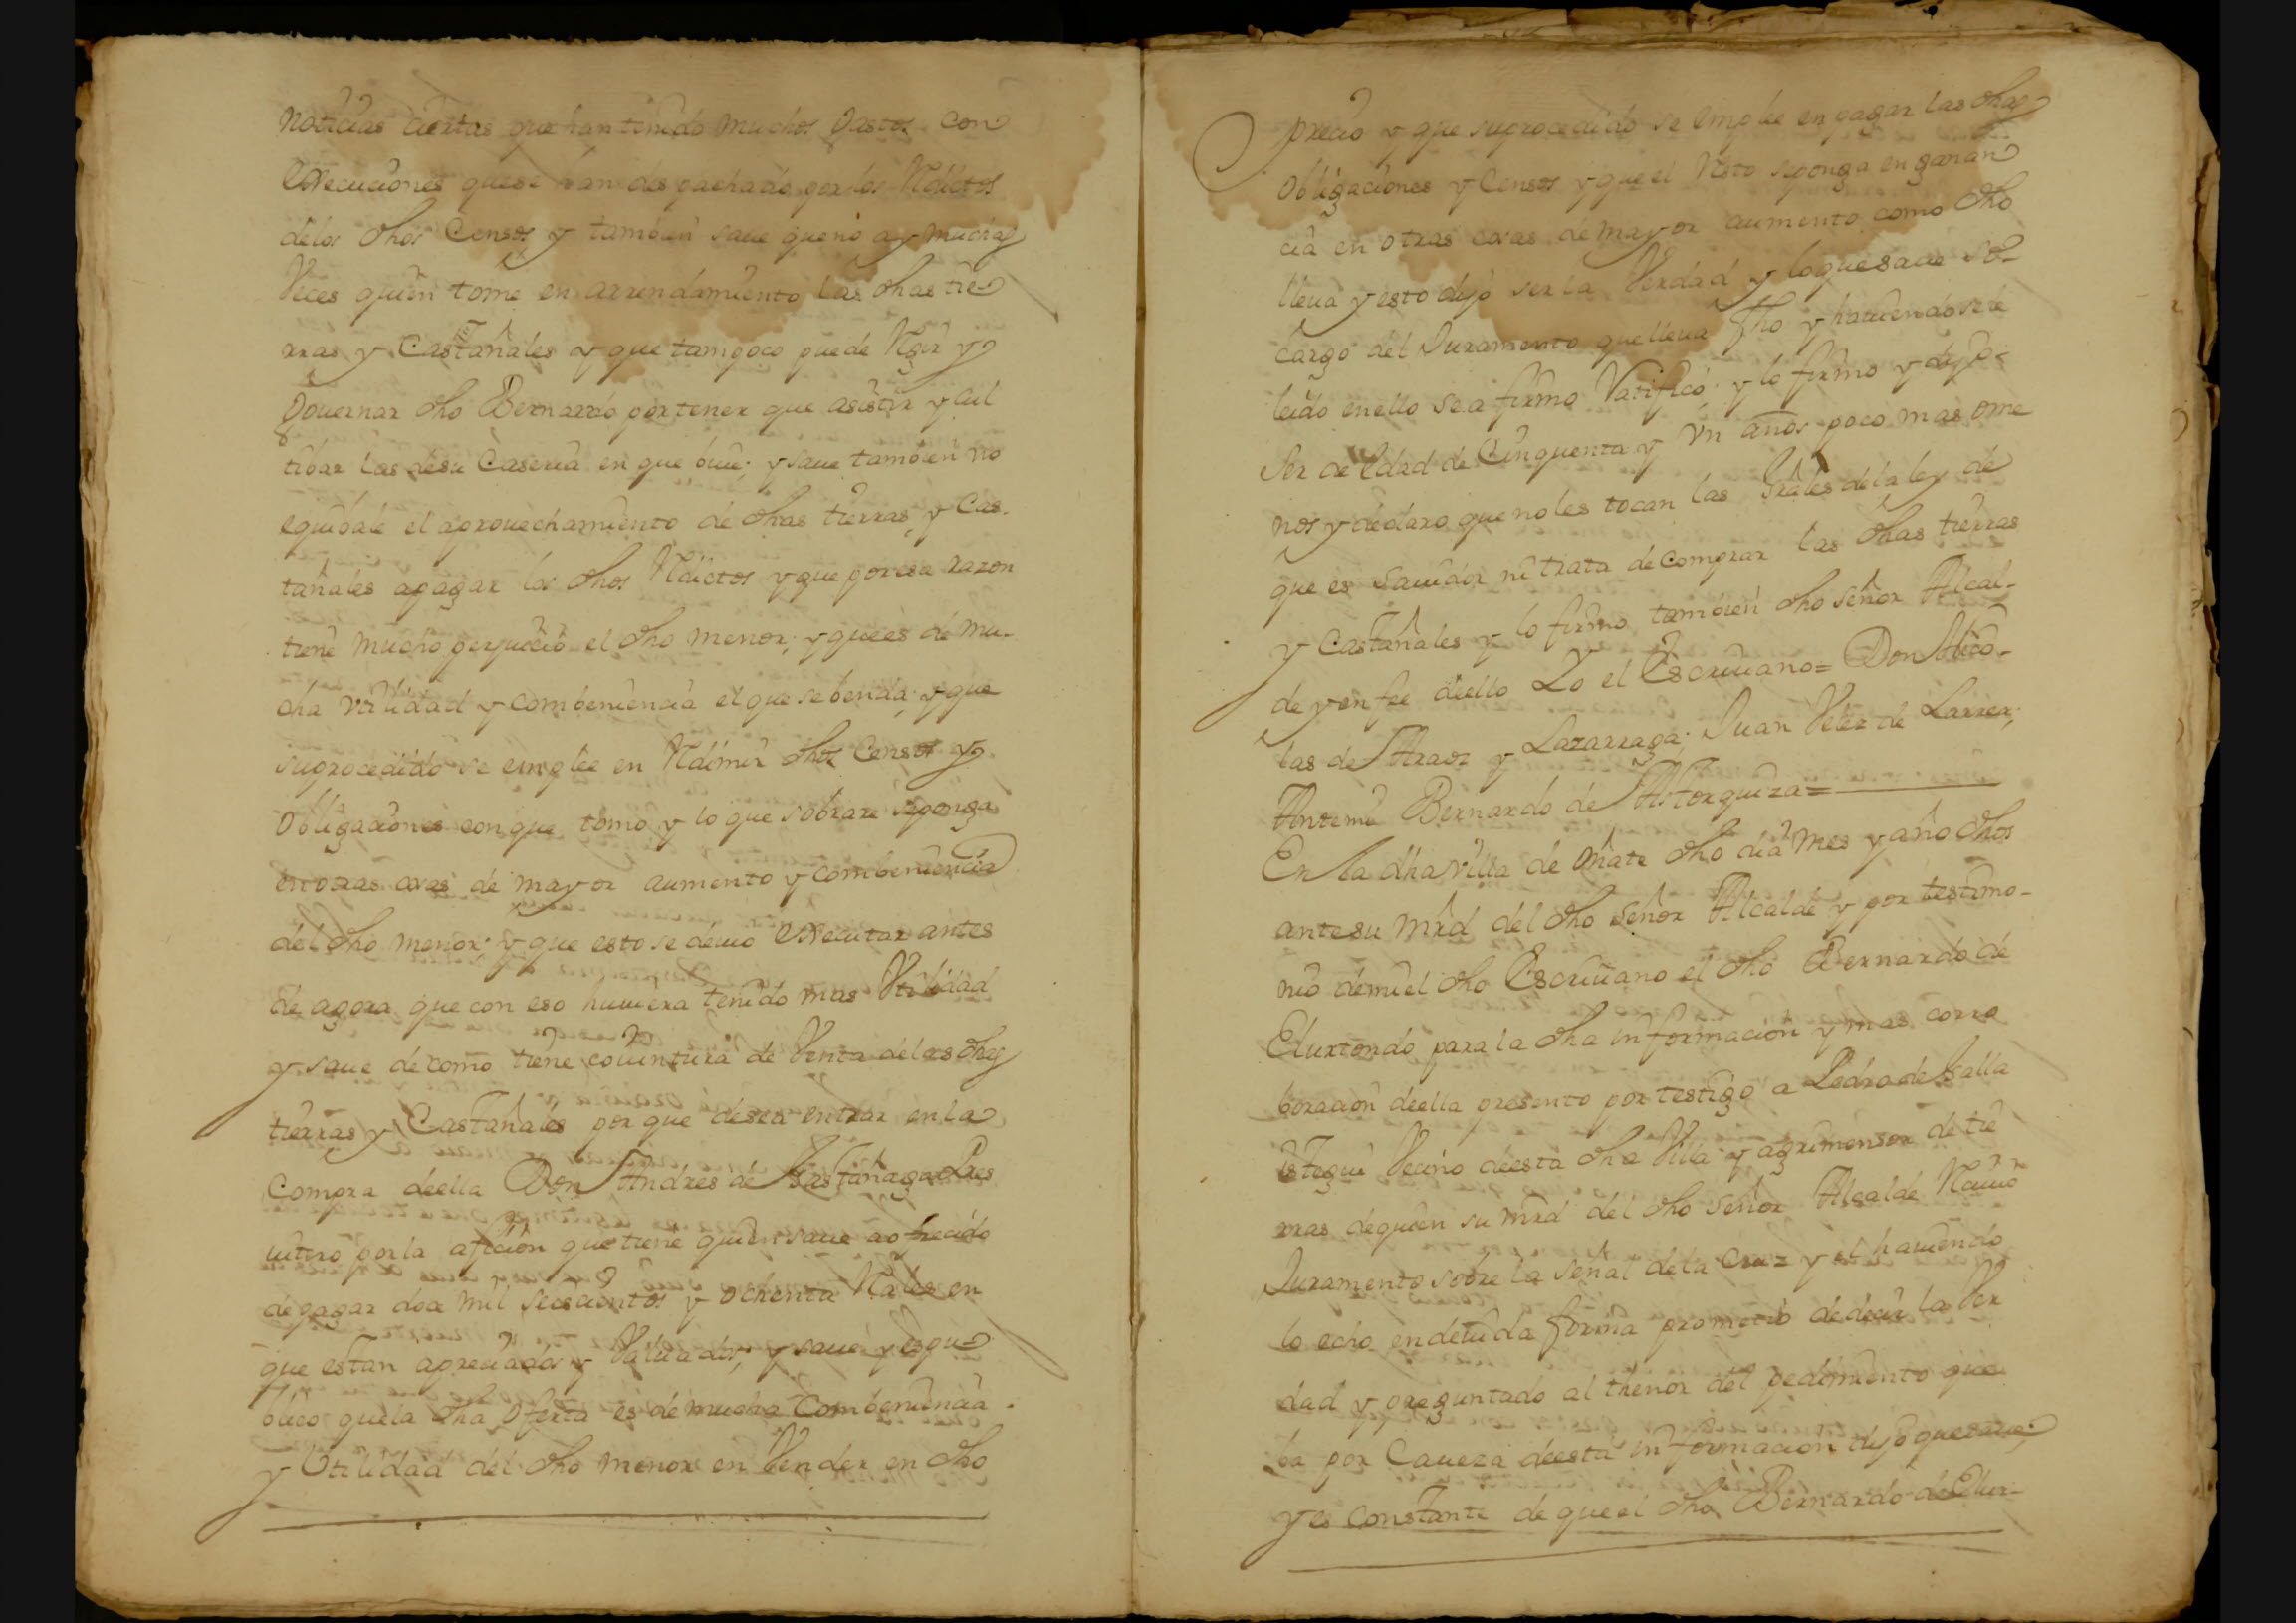 noticias ciertas que han tenido muchos gastos con
execuciones que se han despachado por los Reditos
de los dhos Censos y tambien saue que no ay muchas
Veces quien tome en arrendamiento las dhas tie
rras y Castañales y que tampoco puede Regir y
Gouernar dho Bernardo por tener que asistir y cul
tibar las de su Caseria en que biue; y saue tambien no
equibale el aprouechamiento de dhas tierras y Cas-
tañales apagar los dhos Reditos y que por esa razon
tiene mucho perjuicio el dho menor; y que es de mu-
cha Vtilidad y combeniencia el que se benda; y que
su procedido se emplee en Redimir dhos Censos y
Obligaciones con que tomo y lo que sobrare se ponga
en otras cosas de mayor aumento y combeniencia
del dho menor; y que esto se deuio executar antes
de agora que con eso huuiera tenido mas Vtilidad
y saue de como tiene couintura de Venta de las dhas
tierras y Castañales por que desea entrar en la
Compra deella Don Andres de Gastañaga Pres
uitero por la aficion que tiene quien saue a ofrecido
de pagar dos mil seiscientos y ochenta Reales en
que estan apreciados y Valuados; y saue y es pu
blico que la dha oferta es de mucha Combeniencia
y Vtilidad del dho menor en Vender en dho
precio y que su procedido se emplee en pagar las dhas
Obligaciones y Censos y que el Resto se ponga en ganan
cia en otras cosas de mayor aumento como dho
lleua y esto dijo ser la Verdad y lo que saue so-
cargo del Juramento que lleua fho y hauiendosele
leido en ello se afirmo Ratifico; y lo firmo y dijo
Ser de Edad de Cinquenta y Vn años poco mas ome
nos y declaro que no les tocan las Grales de la ley de
que es sauidor ni trata de comprar las dhas tierras
y Castañales y lo firmo tambien dho señor Alcal-
de y en fee deello Yo el Escriuano= Don Nico-
las de Araoz y Lazarraga; Juan Velez de Larrea;
Antemi Bernardo de Astorquiza=
En la dha Villa de Oñate dho dia mes y año dhos
ante su mrd del dho Señor Alcalde y por testimo-
nio de mi el dho Escriuano el dho Bernardo de
Elurtondo para la dha informacion y mas corro
boracion deella presento por testigo a Pedro de Galla
istegui Vecino deesta dha Villa y agrimensor de tie
rras de quien su mrd del dho Señor Alcalde Reciuio
Juramento sobre la señal de la Cruz y el hauiendo
lo echo en deuida forma prometio de decir la Ver
dad y preguntado al thenor del pedimiento que
ba por Caueza deesta informacion dijo que saue;
y es Constante de que el dho Bernardo de Elur-